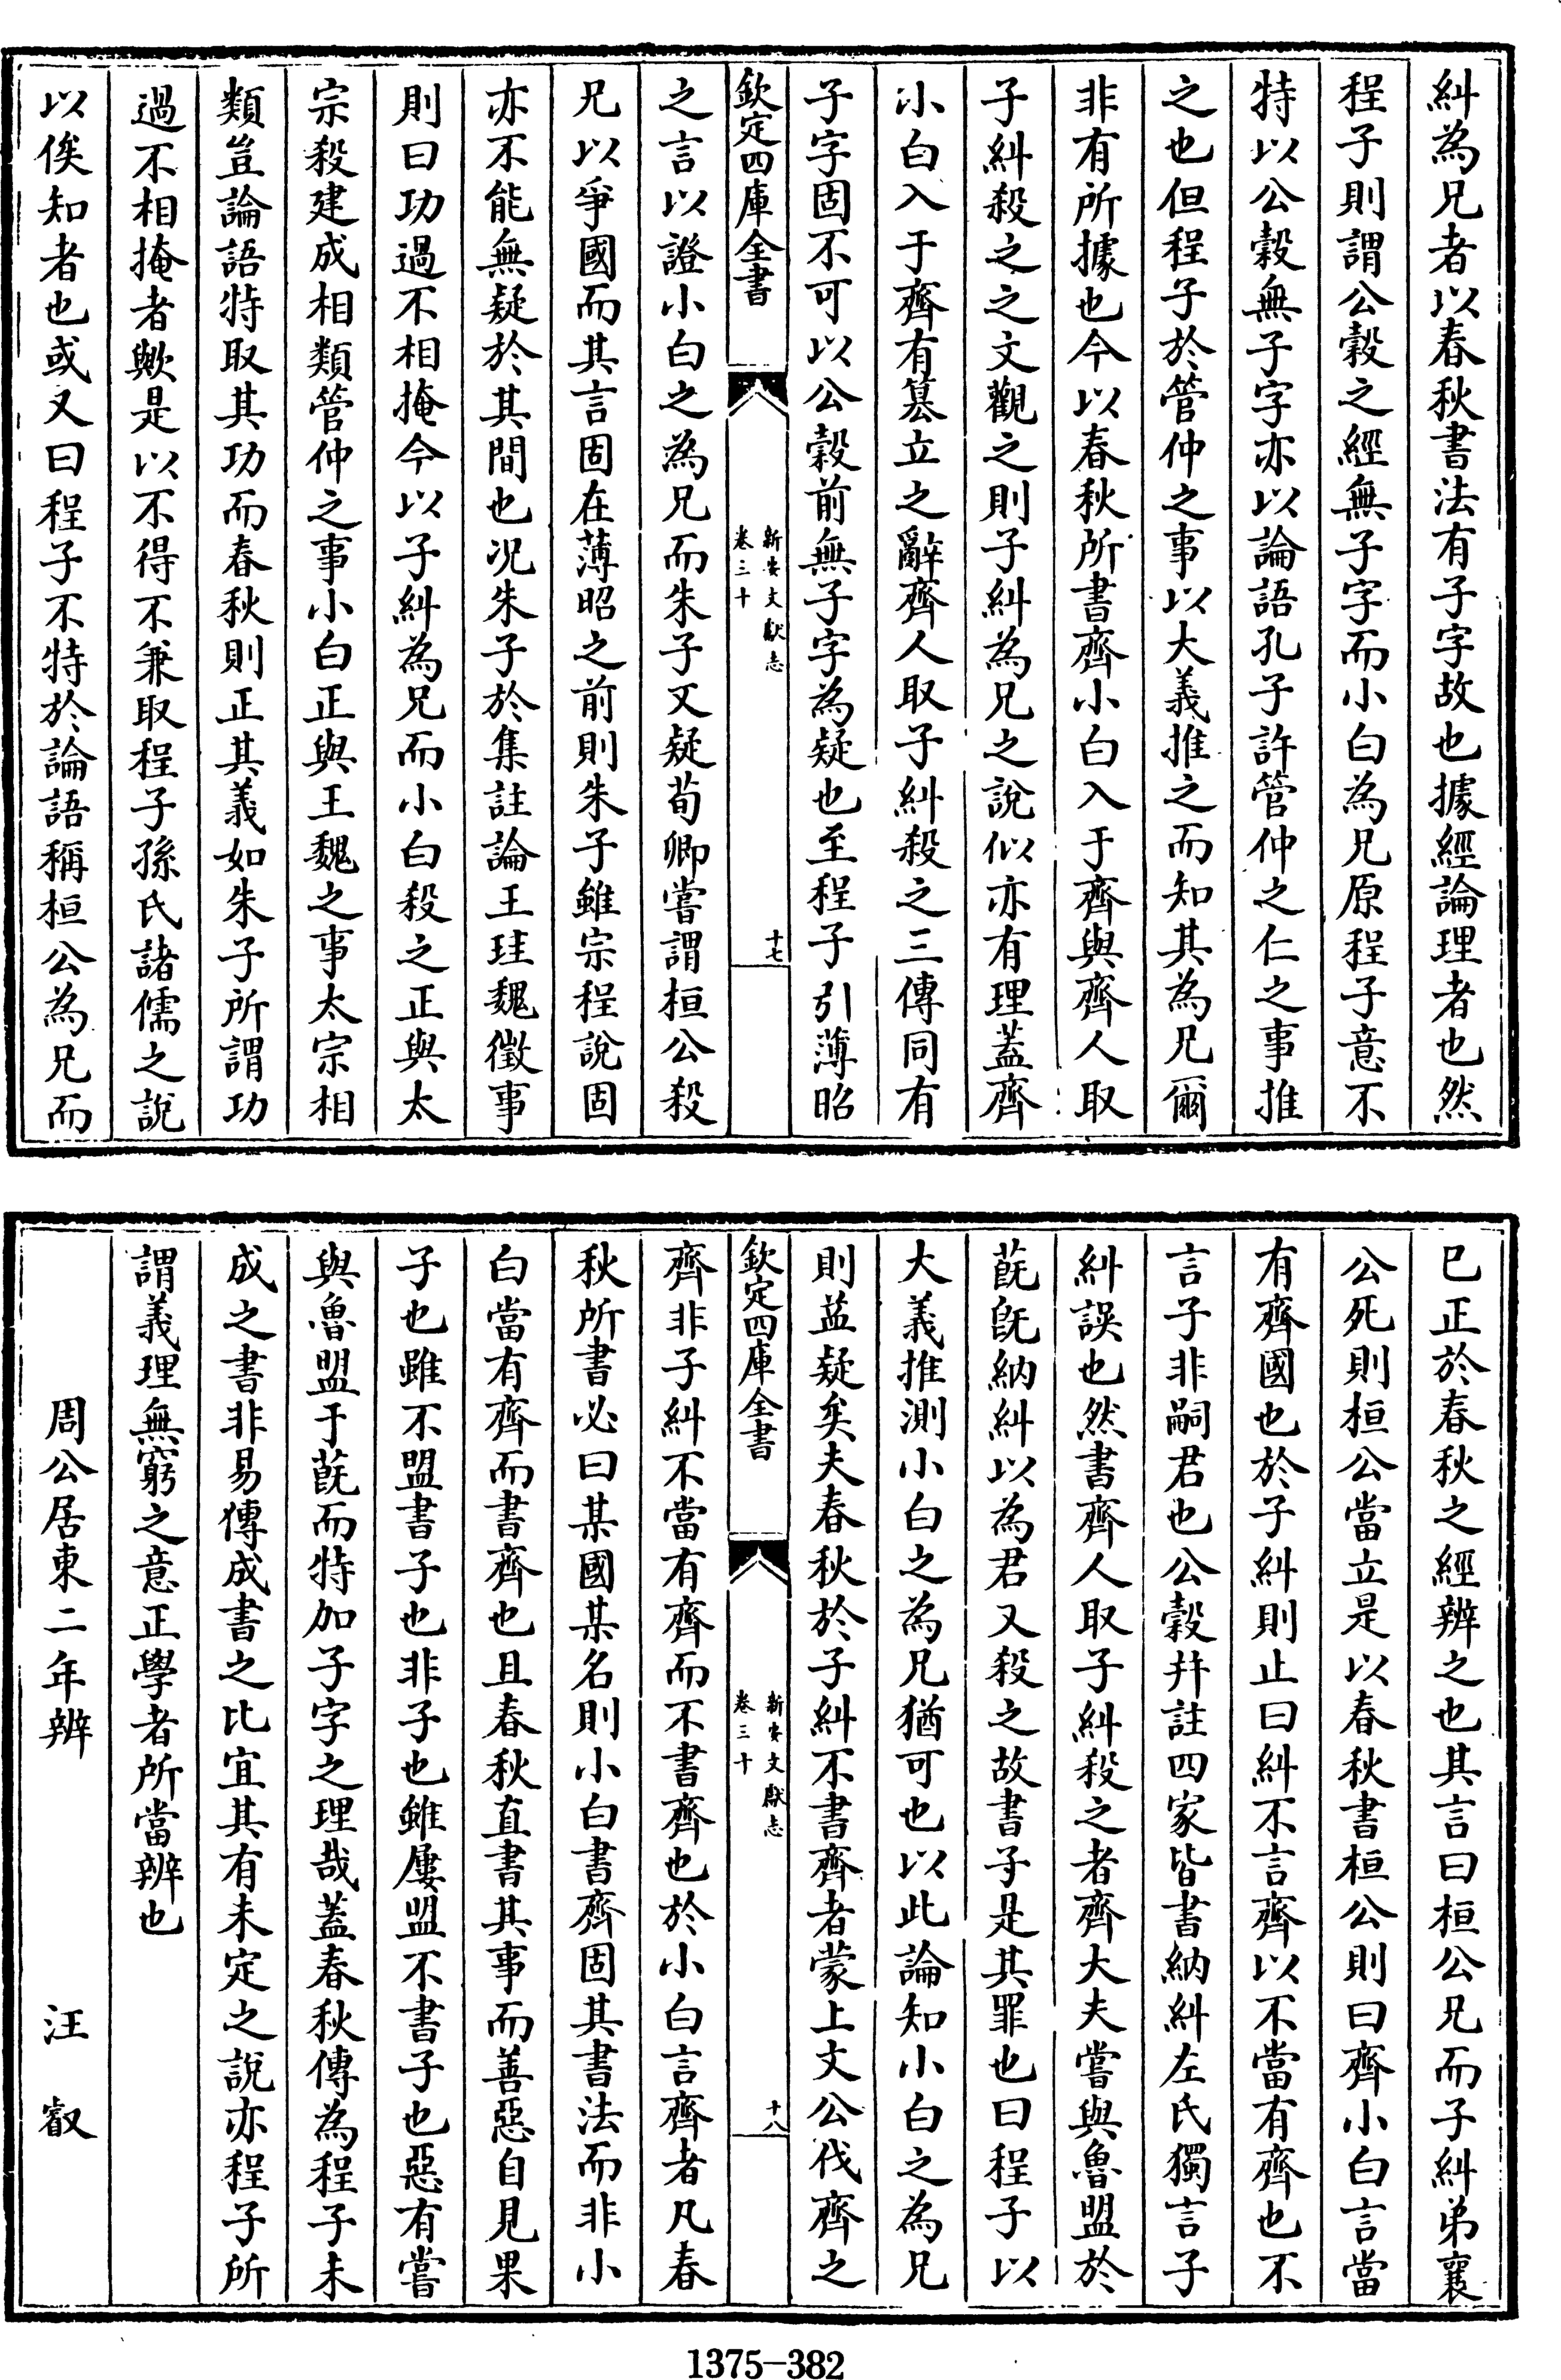 糾為兄者以春秋書法有子字故也據經論理者也然
程子則謂公穀之經無子字而小白為兄原程子意不
特以公穀無子字亦以論語孔子許管仲之仁之事推
之也但程子於管仲之事以大義推之而知其為兄爾
非有所據也今以春秋所書齊小白入于齊與齊人取
子糾殺之之文觀之則子糾為兄之說似亦有理蓋齊
小白入于齊有篡立之辭齊人取子糾殺之三傳同有
子字固不可以公穀前無子字為疑也至程子引薄昭
欽定四庫全書
新安文獻志
卷三十
十七
之言以證小白之為兄而朱子又疑荀卿嘗謂桓公殺
兄以爭國而其言固在薄昭之前則朱子雖宗程說固
亦不能無疑於其間也况朱子於集註論王珪魏徵事
則曰功過不相掩今以子糾為兄而小白殺之正與太
宗殺建成相類管仲之事小白正與王魏之事太宗相
類豈論語特取其功而春秋則正其義如朱子所謂功
過不相掩者歟是以不得不兼取程子孫氏諸儒之說
以俟知者也或又曰程子不特於論語稱桓公為兄而
已正於春秋之經辨之也其言曰桓公兄而子糾弟襄
公死則桓公當立是以春秋書桓公則曰齊小白言當
有齊國也於子糾則止曰糾不言齊以不當有齊也不
言子非嗣君也公穀幷註四家皆書納糾左氏獨言子
糾誤也然書齊人取子糾殺之者齊大夫嘗與魯盟於
蔇旣納糾以為君又殺之故書子是其罪也曰程子以
大義推測小白之為兄猶可也以此論知小白之為兄
則益疑矣夫春秋於子糾不書齊者蒙上文公伐齊之
欽定四庫全書
新安文獻志
卷三十
十八
齊非子糾不當有齊而不書齊也於小白言齊者凡春
秋所書必曰某國某名則小白書齊固其書法而非小
白當有齊而書齊也且春秋直書其事而善惡自見果
子也雖不盟書子也非子也雖屢盟不書子也惡有嘗
與魯盟于蔇而特加子字之理哉蓋春秋傳為程子未
成之書非易傳成書之比宜其有未定之說亦程子所
謂義理無窮之意正學者所當辨也
周公居東二年辨 汪叡
1375-382